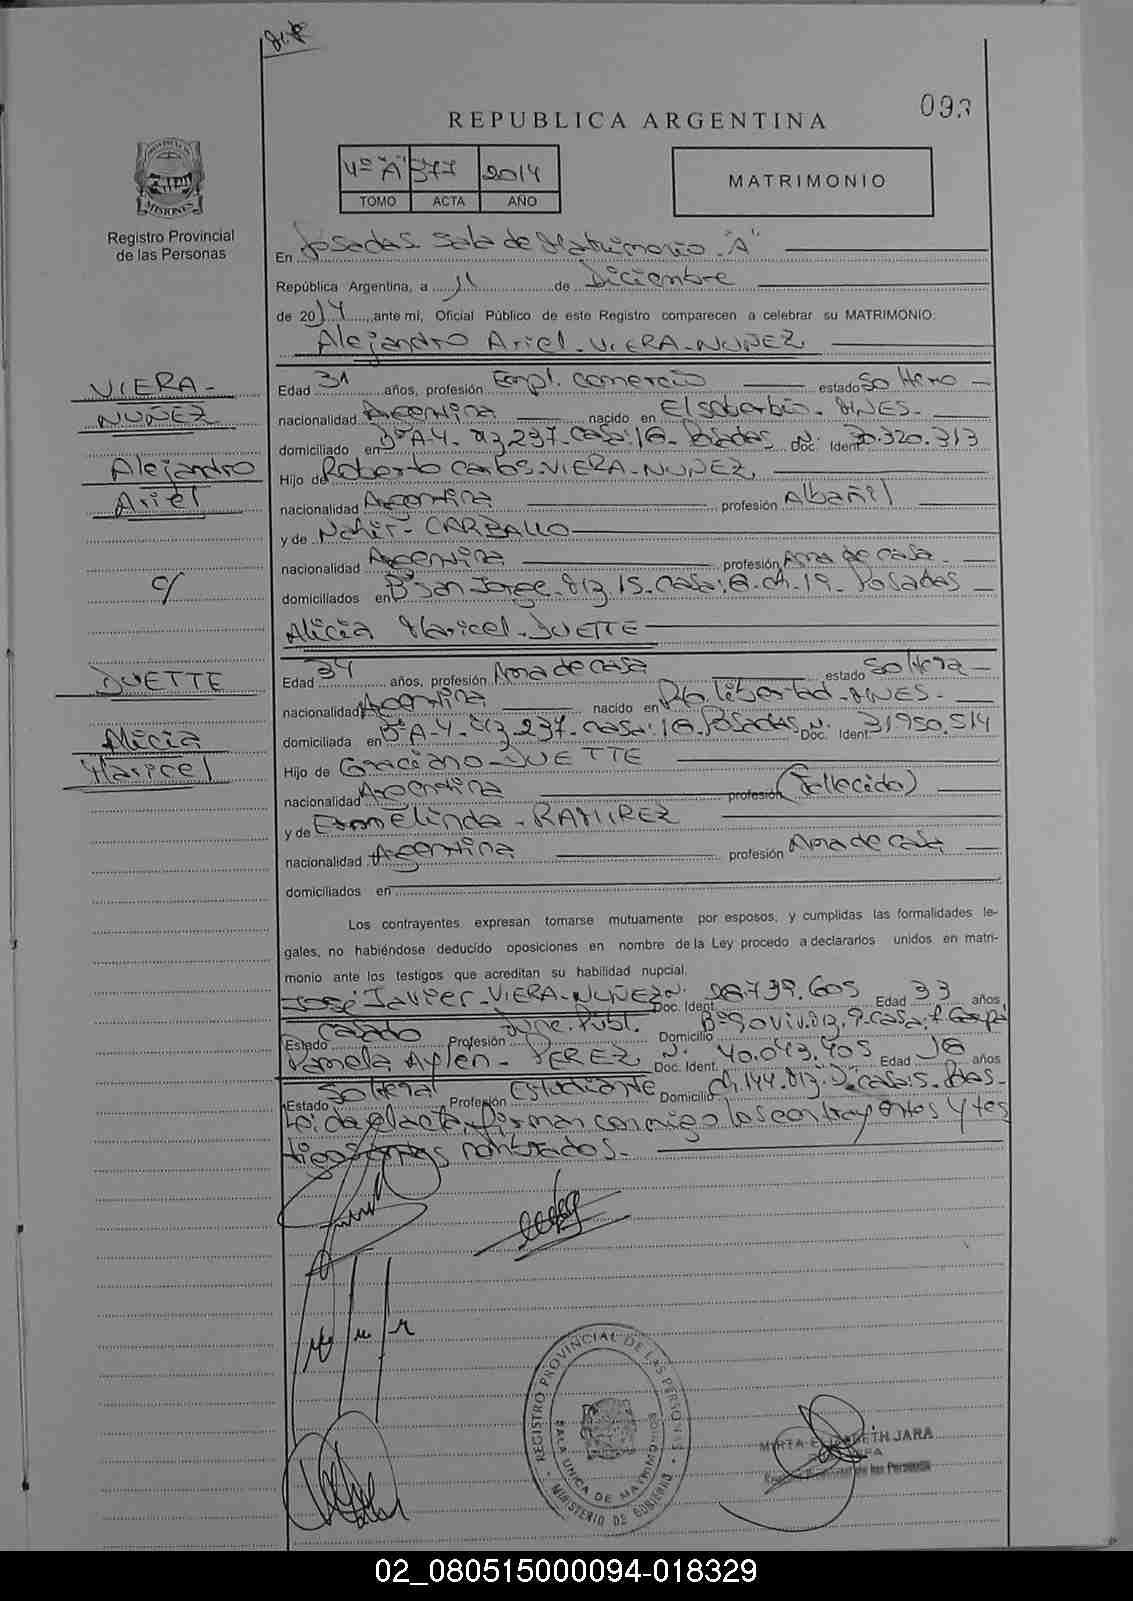 093
REPUBLICA ARGENTINA
4º "A" 377 2014
TOMO ACTA AÑO
MATRIMONIO
PROVINCIA DE MISIONES
Registro Provincial
de las Personas
En Posadas. Sala de Matrimonio. "A"
República Argentina, a 11 de Diciembre
de 2014, ante mí, Oficial Público de este Registro comparecen a celebrar su MATRIMONIO:
Alejandro Ariel - VIERA - NUÑEZ
VIERA -
NUÑEZ
Alejandro
Ariel
c/
DUETTE
Alicia
Maricel
Edad 31 años, profesión Empl. comercio estado Soltero
nacionalidad Argentina nacido en El soberbio - MNES.
domiciliado en Bº A-4 - Mz 237 - casa: 16 - Posadas Doc. Ident. 30.320.313
Hijo de Roberto Carlos - VIERA - NUÑEZ
nacionalidad Argentina profesión Albañil
y de Nahir - CARBALLO
nacionalidad Argentina profesión Ama de casa
domiciliados en Bº San Jorge - Mz 15 - casa: 6 - ch. 19 - Posadas
Alicia Maricel - DUETTE
Edad 34 años, profesión Ama de casa estado Soltera
nacionalidad Argentina nacido en Pto. libertad - MNES -
domiciliada en Bº A-4 - Mz 237 - casa: 16 - Posadas N. Doc. Ident. 31950.514
Hijo de Graciano - DUETTE
nacionalidad Argentina profesión (Fallecido)
y de Ermelinda - RAMIREZ
nacionalidad Argentina profesión Ama de casa
domiciliados en
Los contrayentes expresan tomarse mutuamente por esposos, y cumplidas las formalidades le-
gales, no habiéndose deducido oposiciones en nombre de la Ley procedo a declararlos unidos en matri-
monio ante los testigos que acreditan su habilidad nupcial.
José Javier - VIERA - NUÑEZ N. Doc. Ident. 28.739.605 Edad 33 años
Estado casado Profesión Func. Publ. Domicilio Bº 90 viv. Mz. 9 - casa:
Pamela Aylen - PEREZ N. Doc. Ident. 40.043.405 Edad 18 años
Estado Soltera Profesión Estudiante Domicilio Ch. 144 - Mz. casa: 5 - Pdas -
Leida el acta, firman conmigo los contrayentes y tes
tigos antes nombrados. -
REGISTRO PROVINCIAL DE LAS PERSONAS
SALA UNICA DE MATRIMONIO
MINISTERIO DE GOBIERNO
MIRTA ELIZABETH JARA
Registro Provincial de las Personas
02_080515000094-018329